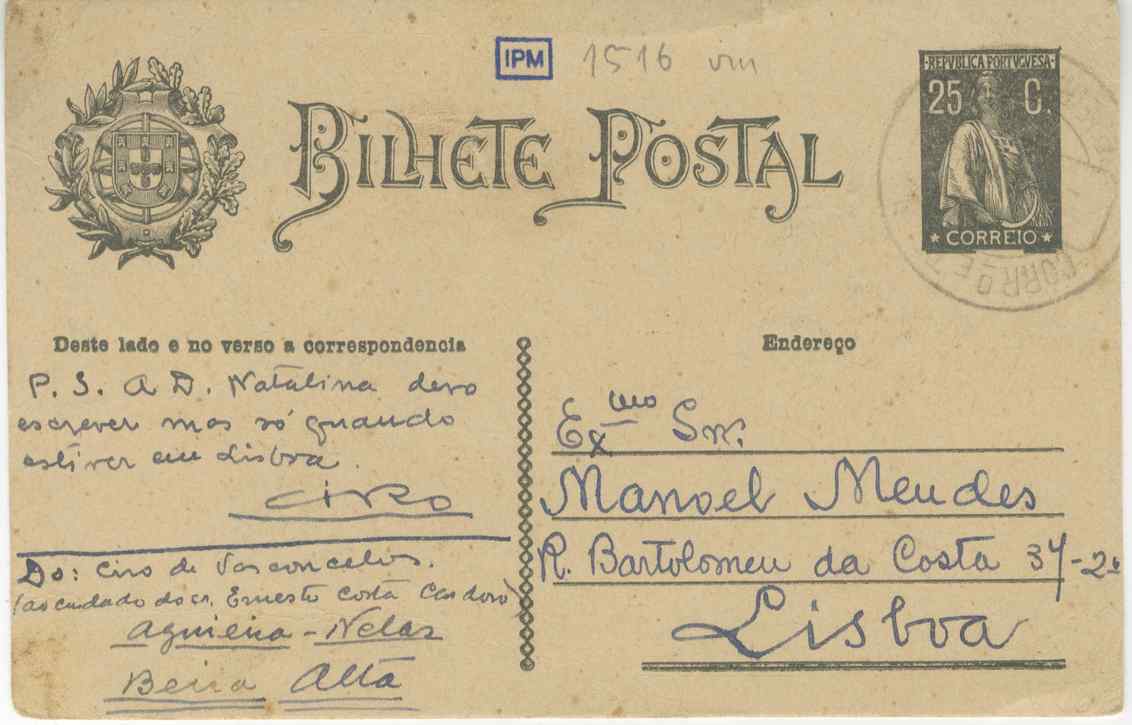 IPM 1516 vm
BILHETE POSTAL
REPUBLICA PORTUGUESA
25 C.
CORREIO
CORR
Deste lado e no verso a correspondencia
P. S. A D. Natalina devo
escrever mas só quando
estiver em Lisboa.
CIRO
Do: Ciro de Vasconcelos.
(ao cuidado do sr. Ernesto Costa Cardoso)
Aguieira - Nelas
Beira Alta
Endereço
Exmo Snr.
Manoel Mendes
R. Bartolomeu da Costa 34-2º
Lisboa